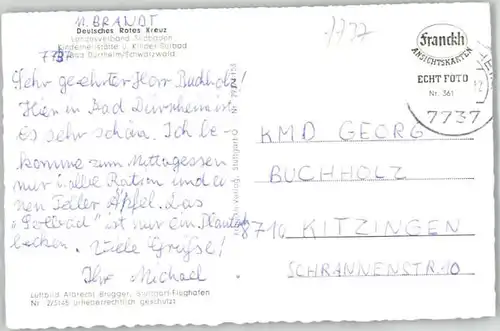 M. BRANDT
Deutsches Rotes Kreuz
Landesverband Südbaden
Kinderheilstätte u. Kinder-Solbad
7737 Bad Dürrheim/Schwarzwald
Sehr geehrter Herr Buchholz!
Hier in Bad Dürrheim ist
es sehr schön. Ich be-
komme zum Mittagessen
nur halbe Ration und ei-
nen Teller Äpfel. Das
„Solbad“ ist nur ein Plantsch
becken. Viele Grüße!
Ihr Michael
Luftbild Albrecht Brugger, Stuttgart-Flughafen
Nr. 2/5145 urheberrechtlich geschützt
7737
Franckh
ANSICHTSKARTEN
ECHT FOTO
Nr. 361
12
7737
KMD GEORG
BUCHHOLZ
8710 KITZINGEN
SCHRANNENSTR. 10